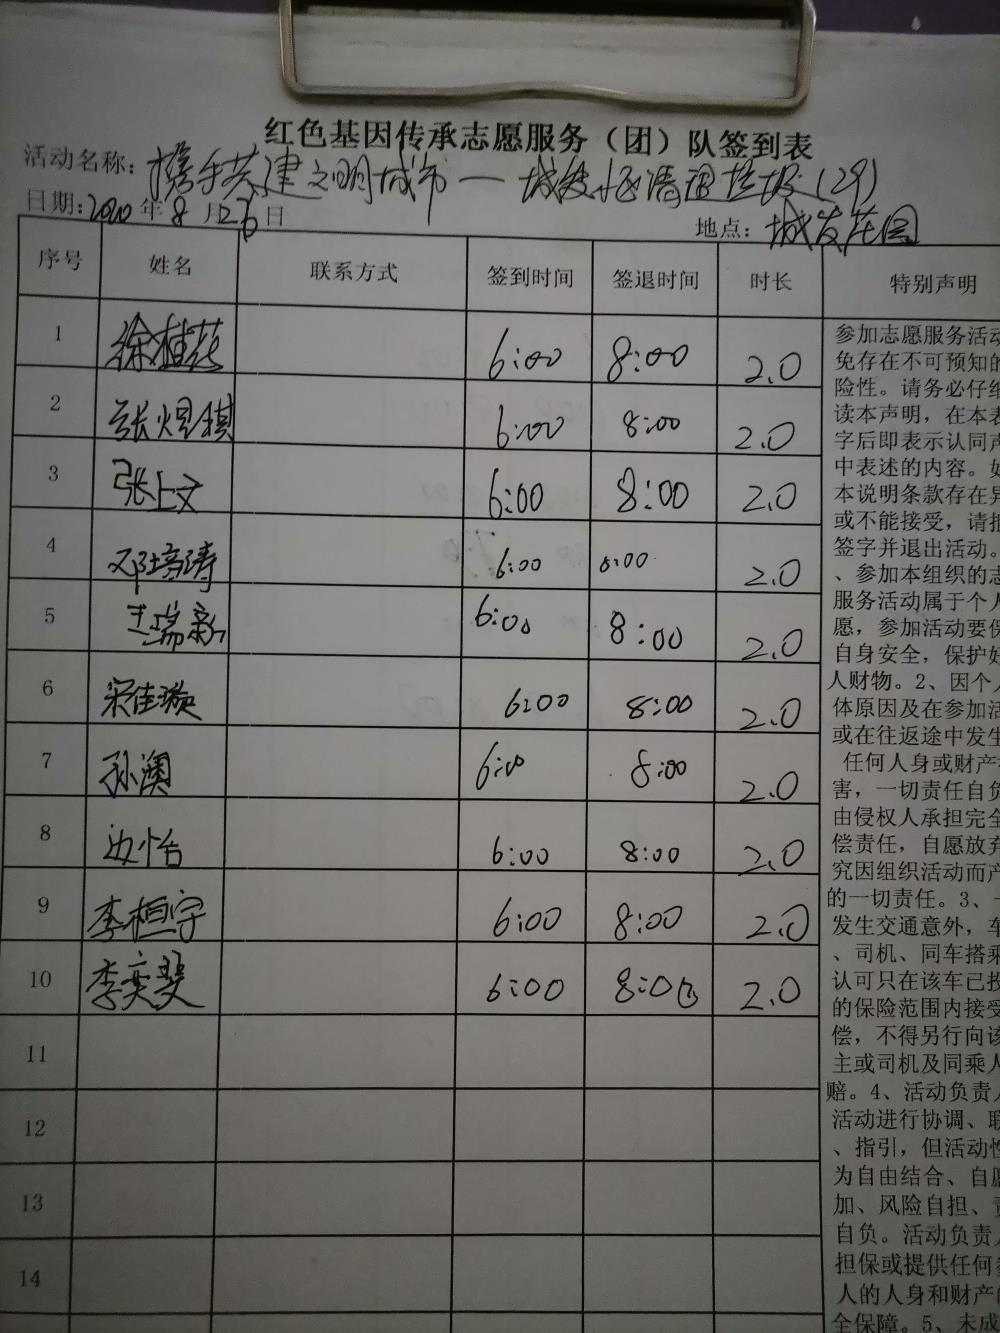 红色基因传承志愿服务（团）队签到表
活动名称：携手共建文明城市一城发 清理垃圾（29）
日期：2020年8月26日 地点：城发花园
序号 姓名 联系方式 签到时间 签退时间 时长 特别声明
1 徐桂花 6:00 8:00 2.0
2 张煜祺 6:00 8:00 2.0
3 张上文 6:00 8:00 2.0
4 邓培涛 6:00 8:00 2.0
5 王瑞新 6:00 8:00 2.0
6 宋佳璇 6:00 8:00 2.0
7 孙澳 6:00 8:00 2.0
8 边怡 6:00 8:00 2.0
9 李桓宇 6:00 8:00 2.0
10 李奕斐 6:00 8:00 2.0
11
12
13
14
参加志愿服务活动
免存在不可预知的
险性。请务必仔细
读本声明，在本表
字后即表示认同声
中表述的内容。如
本说明条款存在异
或不能接受，请拒
签字并退出活动。
、参加本组织的志
服务活动属于个人
愿，参加活动要保
自身安全，保护好
人财物。2、因个人
体原因及在参加活
或在往返途中发生
任何人身或财产
害，一切责任自负
由侵权人承担完全
偿责任，自愿放弃
究因组织活动而产
的一切责任。3、
发生交通意外，车
、司机、同车搭乘
认可只在该车已投
的保险范围内接受
偿，不得另行向该
主或司机及同乘人
赔。4、活动负责人
活动进行协调、联
、指引，但活动性
为自由结合、自愿
加、风险自担、责
自负。活动负责人
担保或提供任何参
人的人身和财产的
全保障。5、未成